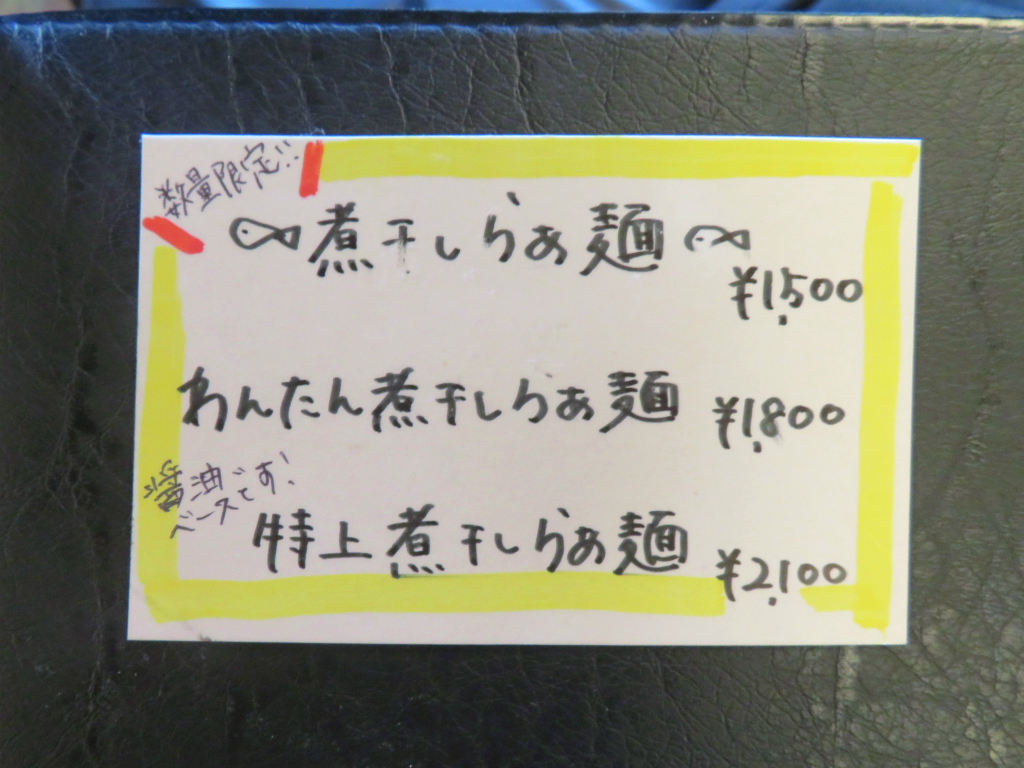 数量限定!!
煮干しらぁ麺
¥1,500
わんたん煮干しらぁ麺 ¥1,800
醤油
ベースです!
特上煮干しらぁ麺
¥2,100